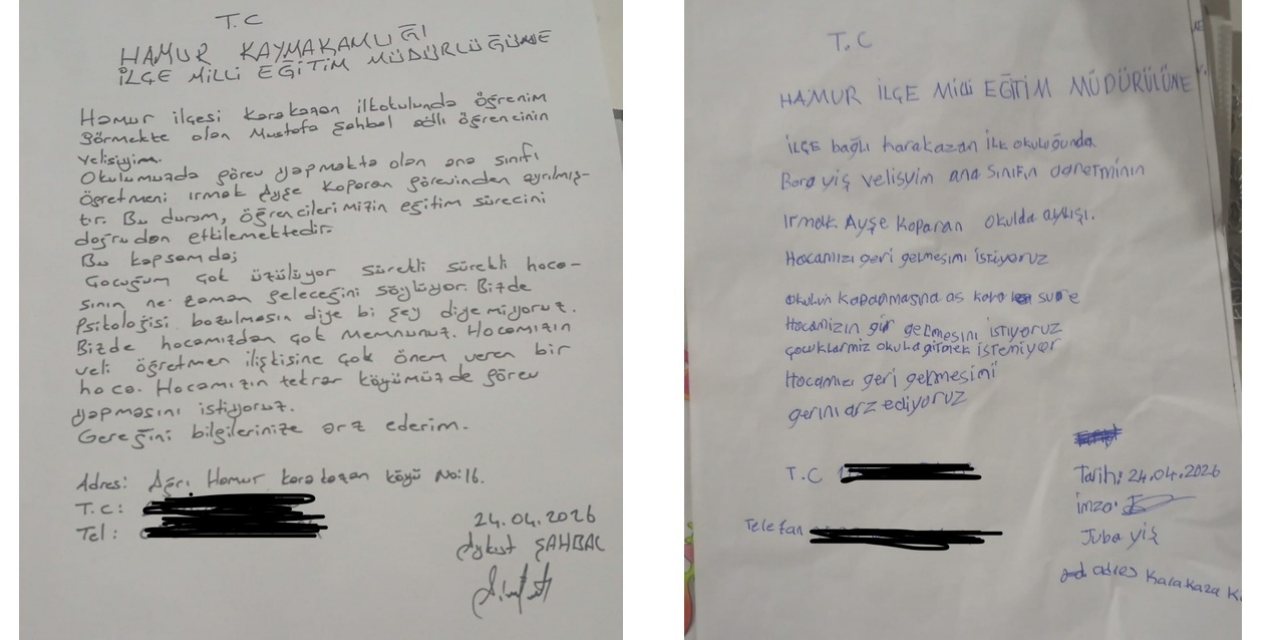 T.C
HAMUR KAYMAKAMLIĞI
İLÇE MİLLİ EĞİTİM MÜDÜRLÜĞÜNE
Hamur ilçesi Karakazan ilkokulunda öğrenim
görmekte olan Mustafa Şahbal adlı öğrencinin
velisiyim.
Okulumuzda görev yapmakta olan ana sınıfı
öğretmeni ırmak Ayşe Koparan görevinden ayrılmış-
tır. Bu durum, öğrencilerimizin eğitim sürecini
doğrudan etkilemektedir.
Bu kapsamda;
Çocuğum çok üzülüyor sürekli sürekli hoca-
sının ne zaman geleceğini söylüyor. Bizde
Psikoloğisi bozulmasın diye bi şey diyemiyoruz.
Bizde hocamızdan çok memnunuz. Hocamızın
veli öğretmen ilişkisine çok önem veren bir
hoca. Hocamızın tekrar köyümüzde görev
yapmasını istiyoruz.
Gereğini bilgilerinize arz ederim.
Adres: Ağrı Hamur karakazan köyü No:16.
T.C:
Tel:
24.04.2026
Aykut ŞAHBAL
T.C
HAMUR İLÇE Milli EĞİTİM MÜDÜRÜLÜNE
İLÇE bağlı karakazan İlk okuluğunda
Bora yiş velisyim ana sınıfın ögretminin
Irmak Ayşe Koparan okulda ayrlışı.
Hocamızı geri gelmesini istiyoruz
okulun kapanmasna as kara sure
Hocamızın gir gelmesini istiyoruz
çocuklarmız okula gitmek istemiyor
Hocamızı geri gelmesini
gerini arz ediyoruz
T.C
Telefan
Tarih: 24.04.2026
imza:
Tuba yiş
adres Karakaza